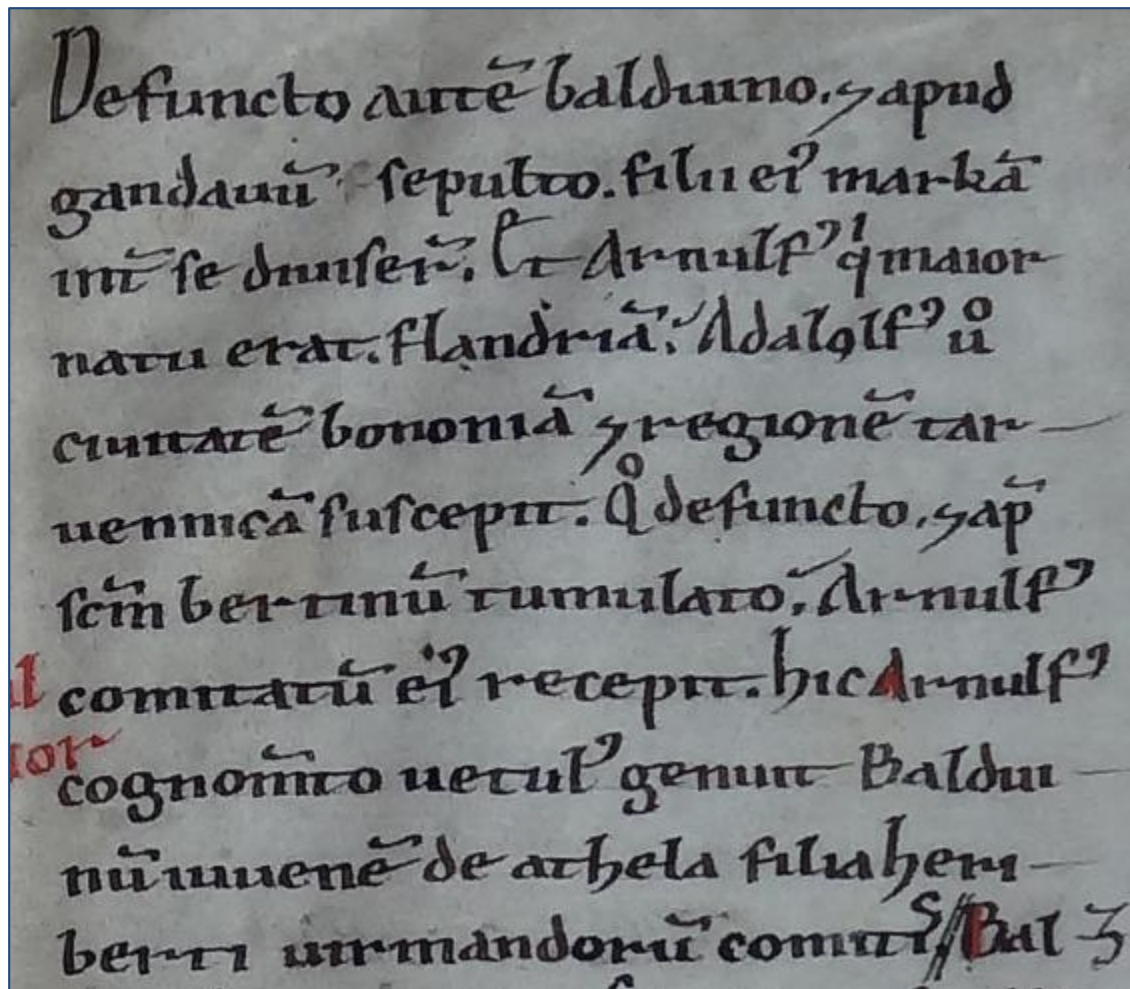 Defuncto autē balduino. ⁊ apud
gandauū sepulto. filii ei⁹ markā
int̄ se diuiser̄. Et Arnulf⁹ qⁱ maior
natu erat. flandriā. Adalolf⁹ uͦ
ciuitatē bononiā ⁊ regionē tar
uennicā suscepit. Qͦ defuncto. ⁊ ap̄
sc̄m bertinū tumulato. Arnulf⁹
comitatū ei⁹ recepit. hic Arnulf⁹
cognom̄to uetul⁹ genuit Baldui
nū iuuenē de athela filia heri
berti uirmandorū comitis // Bal